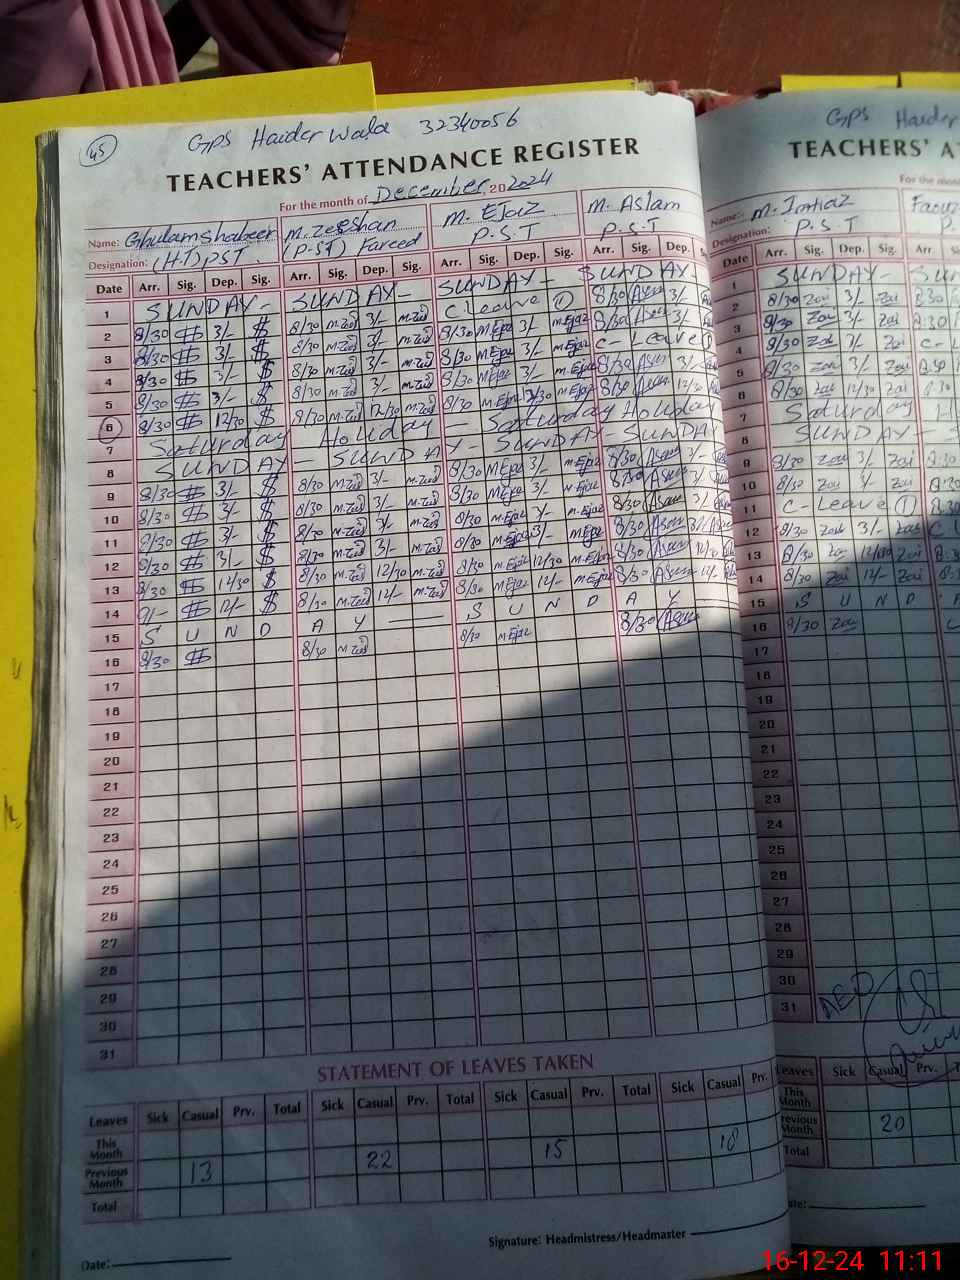 45
GPS Haider Wala 32340056
TEACHERS' ATTENDANCE REGISTER
For the month of December 2024
Name: Ghulam Shabeer M. Zeeshan M. Ejaz M. Aslam
Designation: (H-T) PST (PST) Fareed P.S.T P.S.T
Date Arr. Sig. Dep. Sig. Arr. Sig. Dep. Sig. Arr. Sig. Dep. Sig. Arr. Sig. Dep.
1 SUNDAY - SUNDAY - SUNDAY - SUNDAY -
2 8/30 3/- 8/30 3/- C-Leave 1 8/30 3/-
3 8/30 3/- 8/30 3/- 8/30 3/- 8/30 3/-
4 8/30 3/- 8/30 3/- 8/30 3/- C-Leave
5 8/30 3/- 8/30 3/- 8/30 3/- 8/30 3/-
6 8/30 12/30 8/30 12/30 8/30 12/30 8/30 12/30
7 Saturday Holiday - Saturday Holiday
8 SUNDAY - SUNDAY - SUNDAY - SUNDAY
9 8/30 3/- 8/30 3/- 8/30 3/- 8/30 3/-
10 8/30 3/- 8/30 3/- 8/30 3/- 8/30 3/-
11 8/30 3/- 8/30 3/- 8/30 3/- 8/30 3/-
12 8/30 3/- 8/30 3/- 8/30 3/- 8/30 3/-
13 8/30 12/30 8/30 12/30 8/30 12/30 8/30 12/30
14 9/- 12/- 8/30 12/- 8/30 12/- 8/30 12/-
15 S U N D A Y - - S U N D A Y
16 8/30 8/30 8/30 8/30
17
18
19
20
21
22
23
24
25
26
27
28
29
30
31
STATEMENT OF LEAVES TAKEN
Leaves Sick Casual Prv. Total Sick Casual Prv. Total Sick Casual Prv. Total Sick Casual Prv.
This Month
Previous Month 13 22 15 18
Total
Date:
Signature: Headmistress/Headmaster
GPS Haider
TEACHERS' AT
For the mon
Name: M. Imtiaz
Designation: P.S.T P.
Date Arr. Sig. Dep. Sig. Arr.
1 SUNDAY - SUN
2 8/30 Zai 3/- Zai 8:30
3 8/30 Zai 3/- Zai 8:30
4 8/30 Zai 3/- Zai C-L
5 8/30 Zai 3/- Zai 8:30
6 8/30 Zai 12/30 Zai 8:30
7 Saturday H
8 SUNDAY - S
9 8/30 Zai 3/- Zai 8:30
10 8/30 Zai 3/- Zai 8:30
11 C-Leave 1 8:30
12 8/30 Zai 3/- Zai C L
13 8/30 Zai 12/30 Zai 8:3
14 8/30 Zai 12/- Zai 8:
15 S U N D A
16 8/30 Zai
17
18
19
20
21
22
23
24
25
26
27
28
29
30
31 AEO
Leaves Sick Casual Prv.
This Month
Previous Month 20
Total
16-12-24 11:11